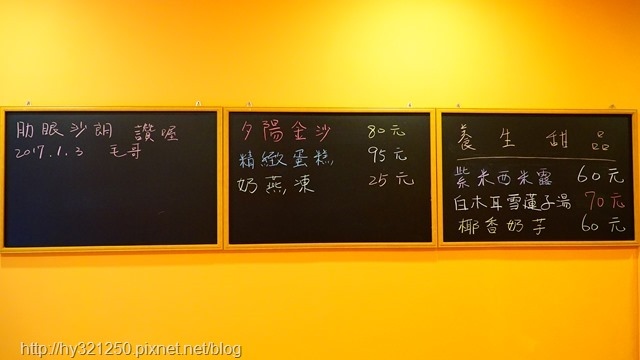 肋眼沙朗 讚喔
2017.1.3 毛哥
夕陽金沙 80元
精緻蛋糕 95元
奶燕凍 25元
養生甜品
紫米西米露 60元
白木耳雪蓮子湯 70元
椰香奶芋 60元
http://hy321250.pixnet.net/blog